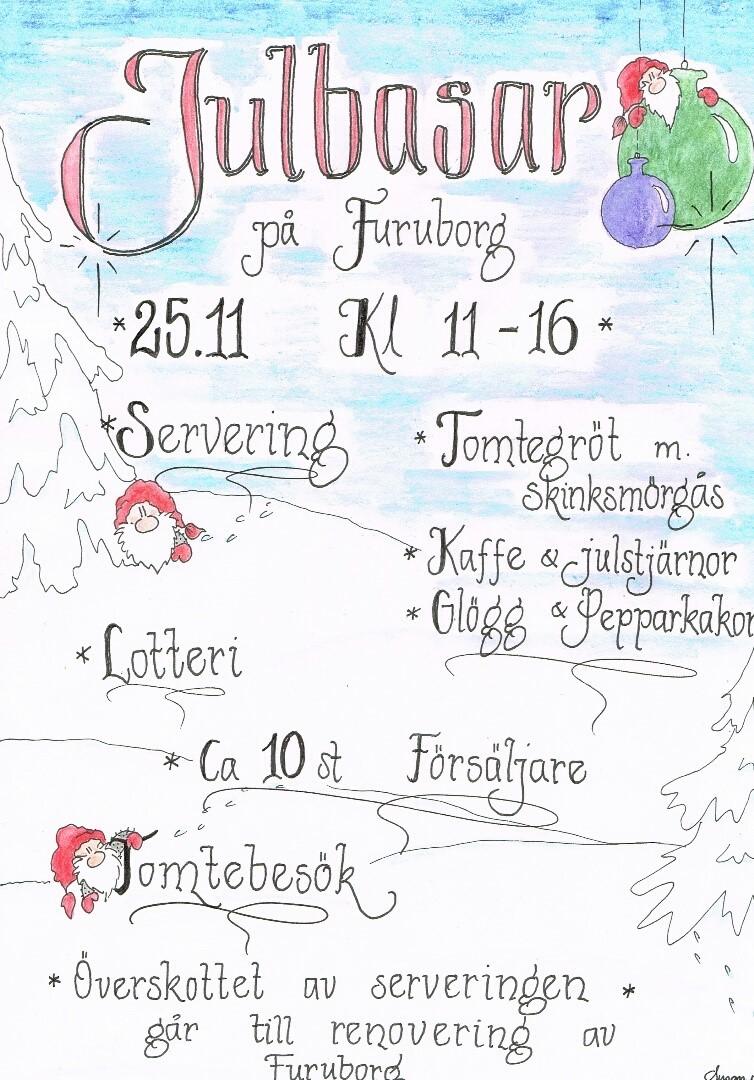 Julbasar
på Furuborg
*25.11 Kl 11-16 *
*Servering
* Tomtegröt m.
skinksmörgås
* Kaffe & julstjärnor
* Glögg & Pepparkakor
* Lotteri
* Ca 10 st Försäljare
Tomtebesök
* Överskottet av serveringen *
går till renovering av
Furuborg